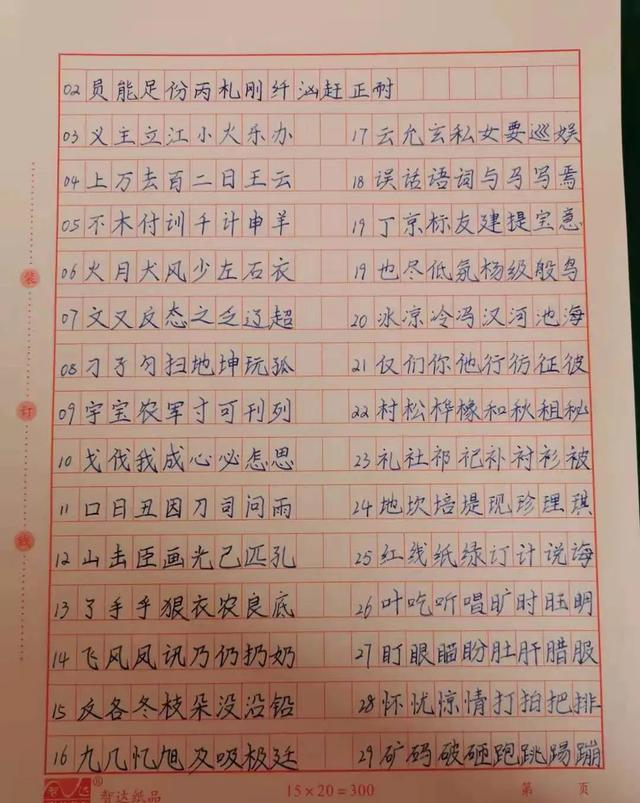 02员能足份丙札刚纤汹赶正耐
03义主立江小火乐办
17云允玄私女要巡娱
04上万去百二日王云
18误话语词与马写焉
05不木付训千计申羊
19丁京标友建提宝意
06火月犬风少左石衣
19也尽低氛杨级般鸟
07文又反态之乏辽超
20冰凉冷冯汉河池海
08刁子匀扫地坤玩孤
21仅们你他行彷征彼
09宇宝农军寸可刊列
22村松桦橡和秋租秘
10戈伐我成心必怎思
23礼社祁祀补衬衫被
11口日丑因刀司问雨
24地坎培堤现珍理琪
12山击臣画光己匹孔
25红线纸绿订计说诲
13了手乎狠衣农良底
26叶吃听唱旷时旺明
14飞风凤讯乃仍扔奶
27盯眼瞄盼肚肝腊服
15夂各冬枝朵没沿铅
28怀忧惊情打拍把排
16九几忆旭及吸极廷
29矿码破砸跑跳踢蹦
装
订
线
智达
®
智达纸品
15×20=300
第 页